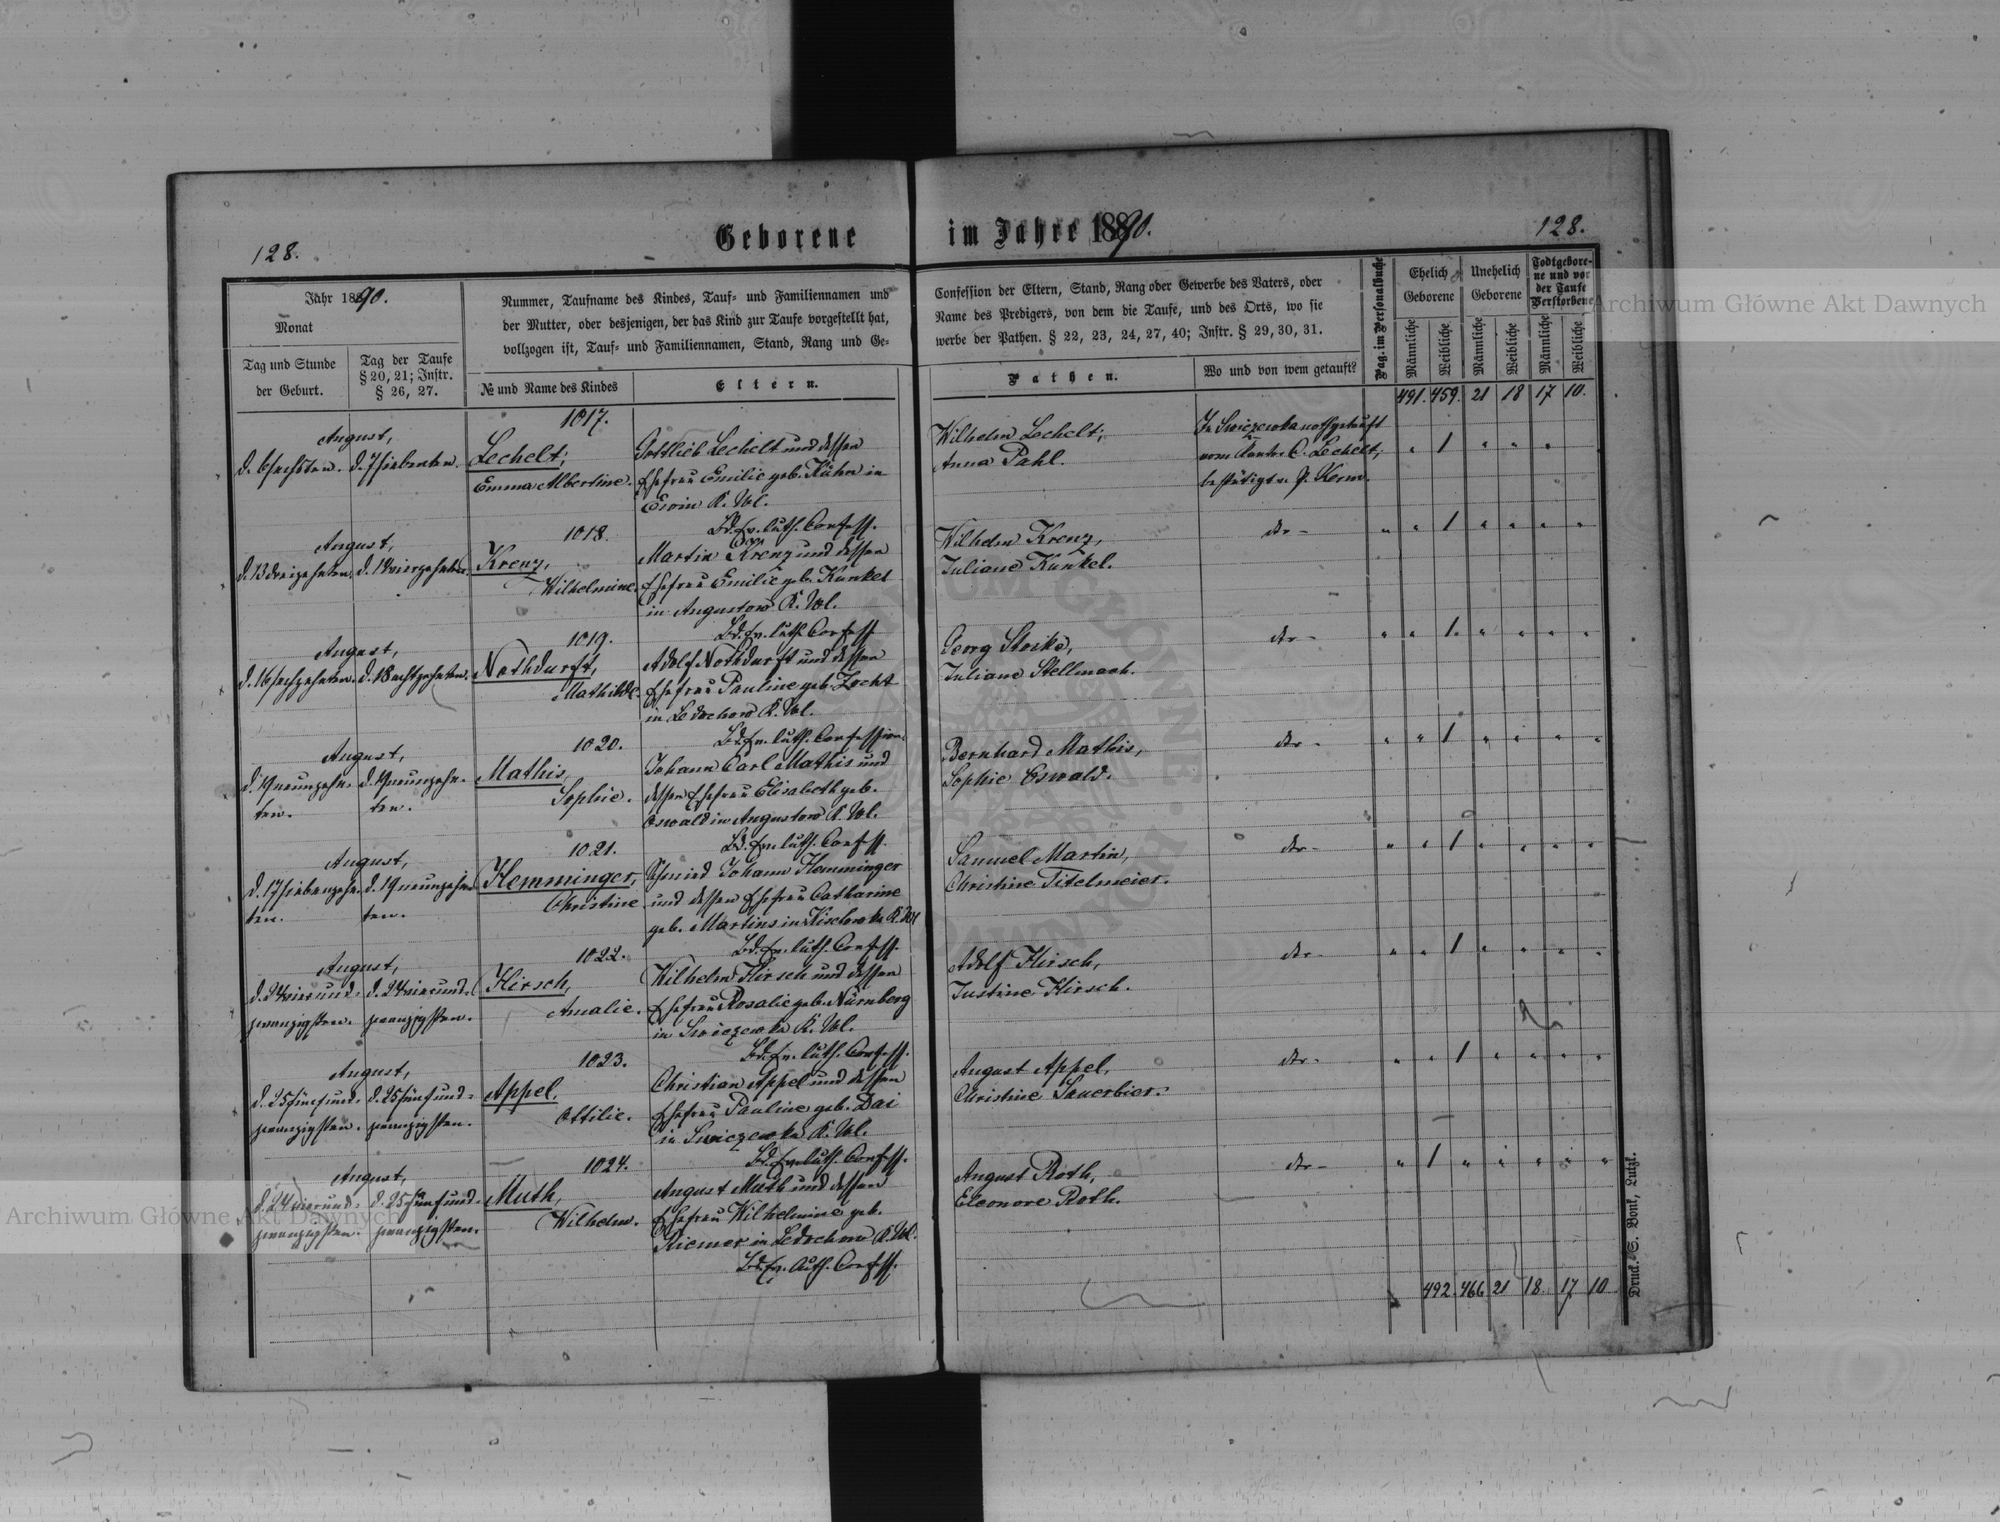 Geborene im Jahre 1890.
128.
128.
Jahr 1890.
Monat
Tag und Stunde
der Geburt.
Tag der Taufe
§ 20, 21; Instr.
§ 26, 27.
Nummer, Taufname des Kindes, Tauf- und Familiennamen und
der Mutter, oder desjenigen, der das Kind zur Taufe vorgestellt hat,
vollzogen ist, Tauf- und Familiennamen, Stand, Rang und Ge-
№ und Name des Kindes
Eltern.
Confession der Eltern, Stand, Rang oder Gewerbe des Vaters, oder
Name des Predigers, von dem die Taufe, und des Orts, wo sie
werbe der Pathen. § 22, 23, 24, 27, 40; Instr. § 29, 30, 31.
Pathen.
Wo und von wem getauft?
Pag. im Personalbuche
Ehelich
Geborene
Unehelich
Geborene
Todtgebore-
ne und vor
der Taufe
Verstorbene
Männliche
Weibliche
Männliche
Weibliche
Männliche
Weibliche
491. 459. 21 18 17 10.
1017.
August,
d. 6 sechsten. d. 7 siebenten.
Lechelt,
Emma Albertine.
Gottlieb Lechelt und dessen
Ehefrau Emilie geb. Kühn in
K. Wol.
Bd. ev. luth. Confess.
Wilhelm Lechelt,
Anna Pahl.
In Swiczewka nothgetauft
vom Kantor C. Lechelt,
bestätigt v. P. Kerm.
1
1018.
August,
d. 13 dreizehnten. d. 14 vierzehnten.
Krenz,
Wilhelmine.
Martin Krenz und dessen
Ehefrau Emilie geb. Kunkel
in Augustow K. Wol.
Bd. ev. luth. Confess
Wilhelm Krenz,
Juliane Kunkel.
dto -
1
1019.
August,
d. 16 sechzehnten. d. 18 achtzehnten.
Nothdurft,
Mathilde.
Adolf Nothdurft und dessen
Ehefrau Pauline geb. Zecht
in Ledochow K. Wol.
Bd. ev. luth. Confession.
Georg Steike,
Juliane Stellmach.
dto -
1
1020.
August,
d. 19 neunzehn-
ten.
d. 19 neunzehn-
ten.
Mathis,
Sophie.
Johann Carl Mathis und
dessen Ehefrau Elisabeth geb.
Oswald in Augustow K. Wol.
Bd. ev. luth. Confess.
Bernhard Mathis,
Sophie Oswald.
dto -
1
1021.
August,
d. 17 siebenzehn-
ten.
d. 19 neunzehn-
ten.
Hemminger,
Christine.
Schmied Johann Hemminger
und dessen Ehefrau Catharine
geb. Martins in K. Wol
Bd. ev. luth. Confess.
Samuel Martin,
Christine Titelmeier.
dto -
1
1022.
August,
d. 24 vierund-
zwanzigsten.
d. 24 vierund-
zwanzigsten.
Hirsch,
Amalie.
Wilhelm Hirsch und dessen
Ehefrau Rosalie geb. Nürnberg
in Swiczewka K. Wol.
Bd. ev. luth. Confess.
Adolf Hirsch,
Justine Hirsch.
dto -
1
1023.
August,
d. 25 fünfund-
zwanzigsten.
d. 25 fünfund-
zwanzigsten.
Appel,
Ottilie.
Christian Appel und dessen
Ehefrau Pauline geb. Dai
in Swiczewka K. Wol.
Bd. ev. luth. Confess.
August Appel,
Christine Sauerbier.
dto -
1
1024.
August,
d. 24 vierund-
zwanzigsten.
d. 25 fünfund-
zwanzigsten.
Muth,
Wilhelm.
August Muth und dessen
Ehefrau Wilhelmine geb.
Riemer in Ledochow K. Wol.
Bd. ev. luth. Confess.
August Roth,
Eleonore Roth.
dto -
1
492. 466 21 18. 17 10
Druck. S. Bonk, Lutzk.
Archiwum Główne Akt Dawnych
Archiwum Główne Akt Dawnych